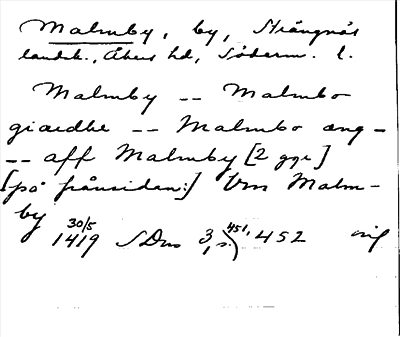 Malmby, by, Strängnäs
landsk., Åkers hd, Söderm. l.
Malmby -- Malmbo
giærdhe -- Malmbo æng-
-- aff Malmby [2 ggr]
[på frånsidan:] Um Malm-
by
30/5
1419 SDns 3, s. 451, 452